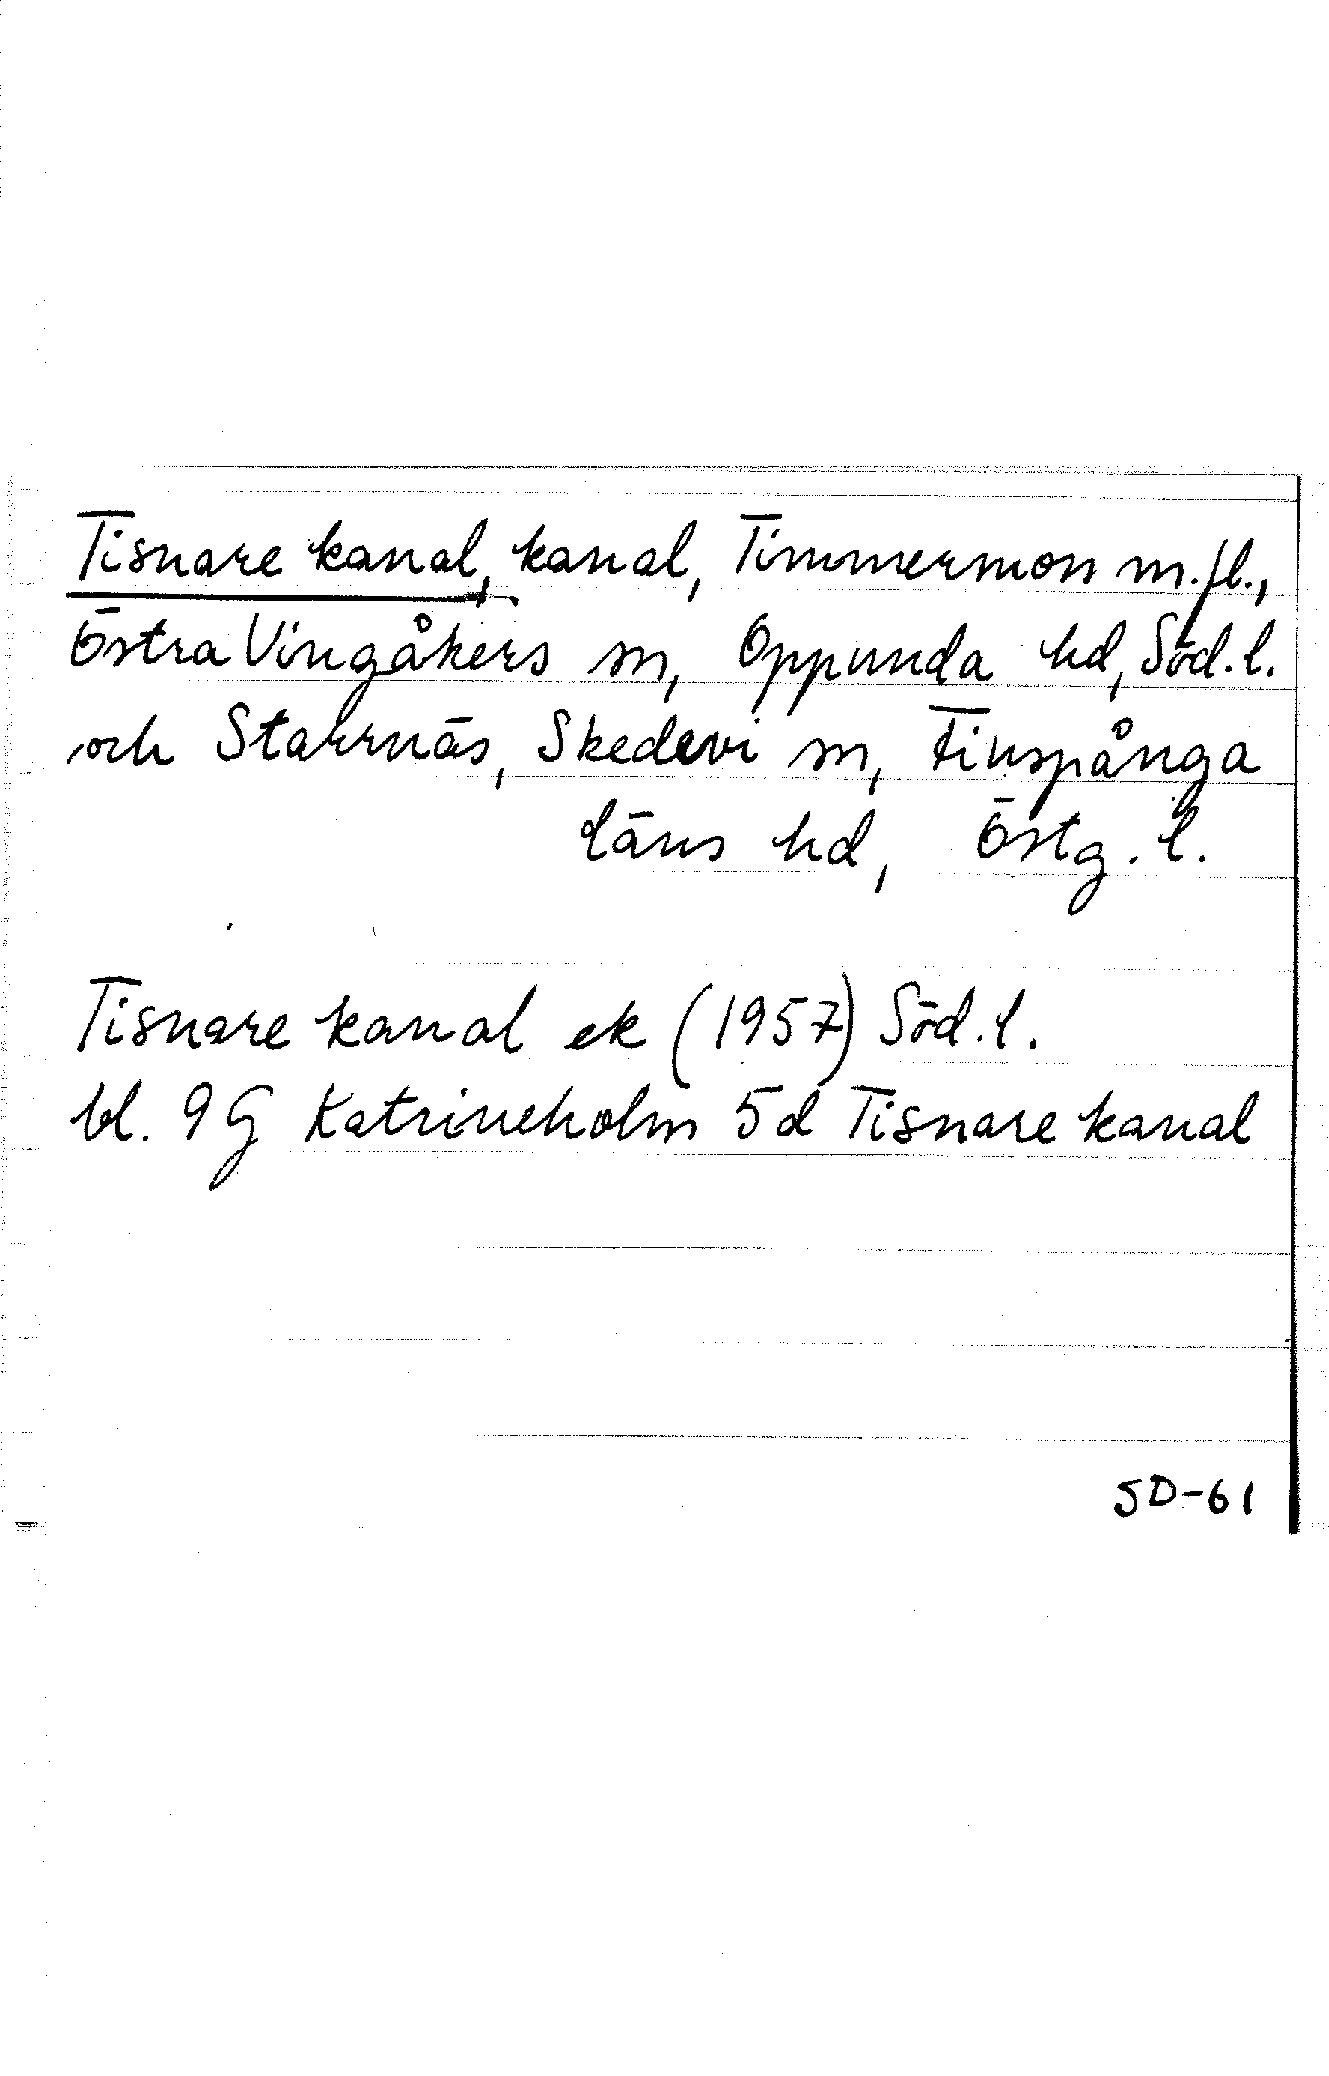 Tisnare kanal, kanal, Timmermon m.fl.,
Östra Vingåkers sn, Oppunda hd, Söd.l.
och Starrnäs, Skedevi sn, Finspånga
läns hd, Östg.l.
Tisnare kanal ek (1957) Söd.l.
bl. 9G Katrineholm 5d Tisnare kanal
SD-61